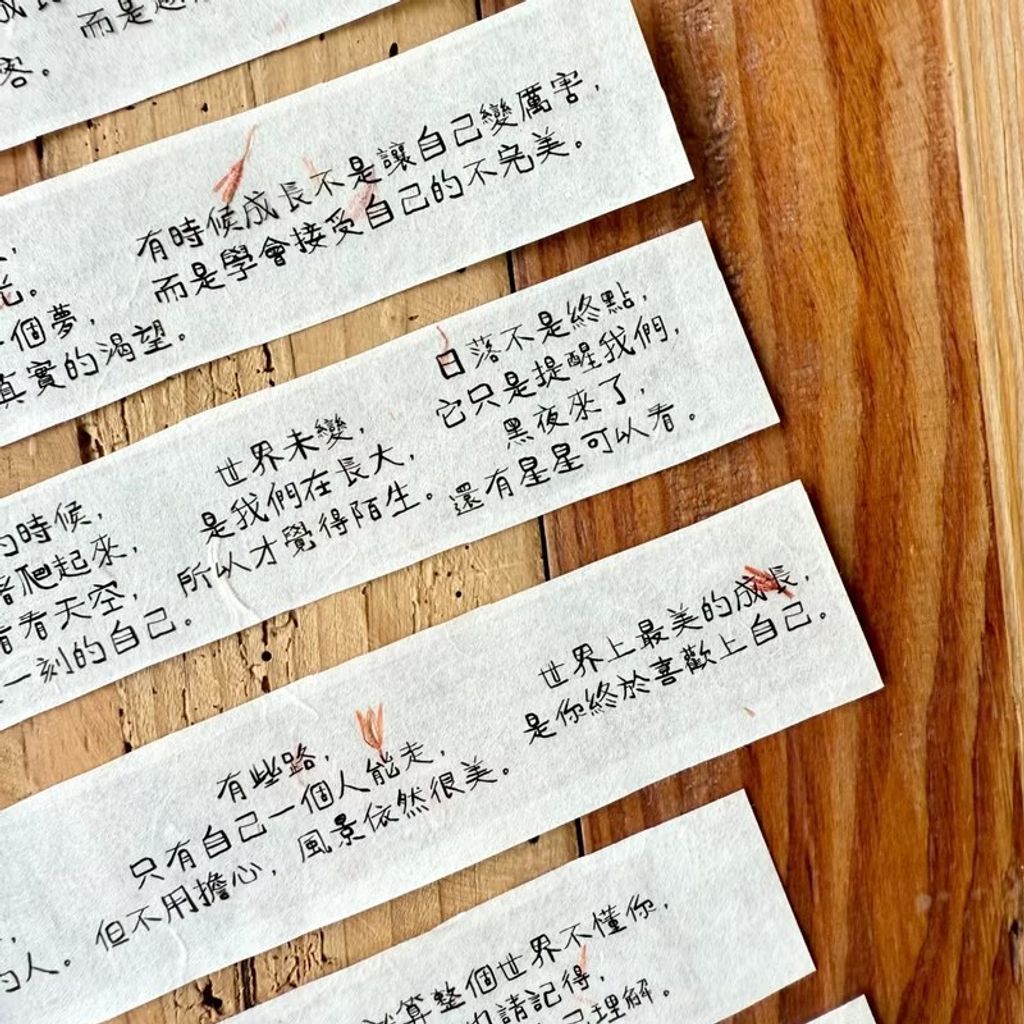 而是
客。
有時候成長不是讓自己變厲害，
而是學會接受自己的不完美。
光。
一個夢，
真實的渴望。
日落不是終點，
它只是提醒我們，
黑夜來了，
還有星星可以看。
世界未變，
是我們在長大，
所以才覺得陌生。
的時候，
著爬起來，
看看天空，
一刻的自己。
世界上最美的成長，
是你終於喜歡上自己。
有些路，
只有自己一個人能走，
但不用擔心，風景依然很美。
的人。
算整個世界不懂你，
請記得，
己理解。